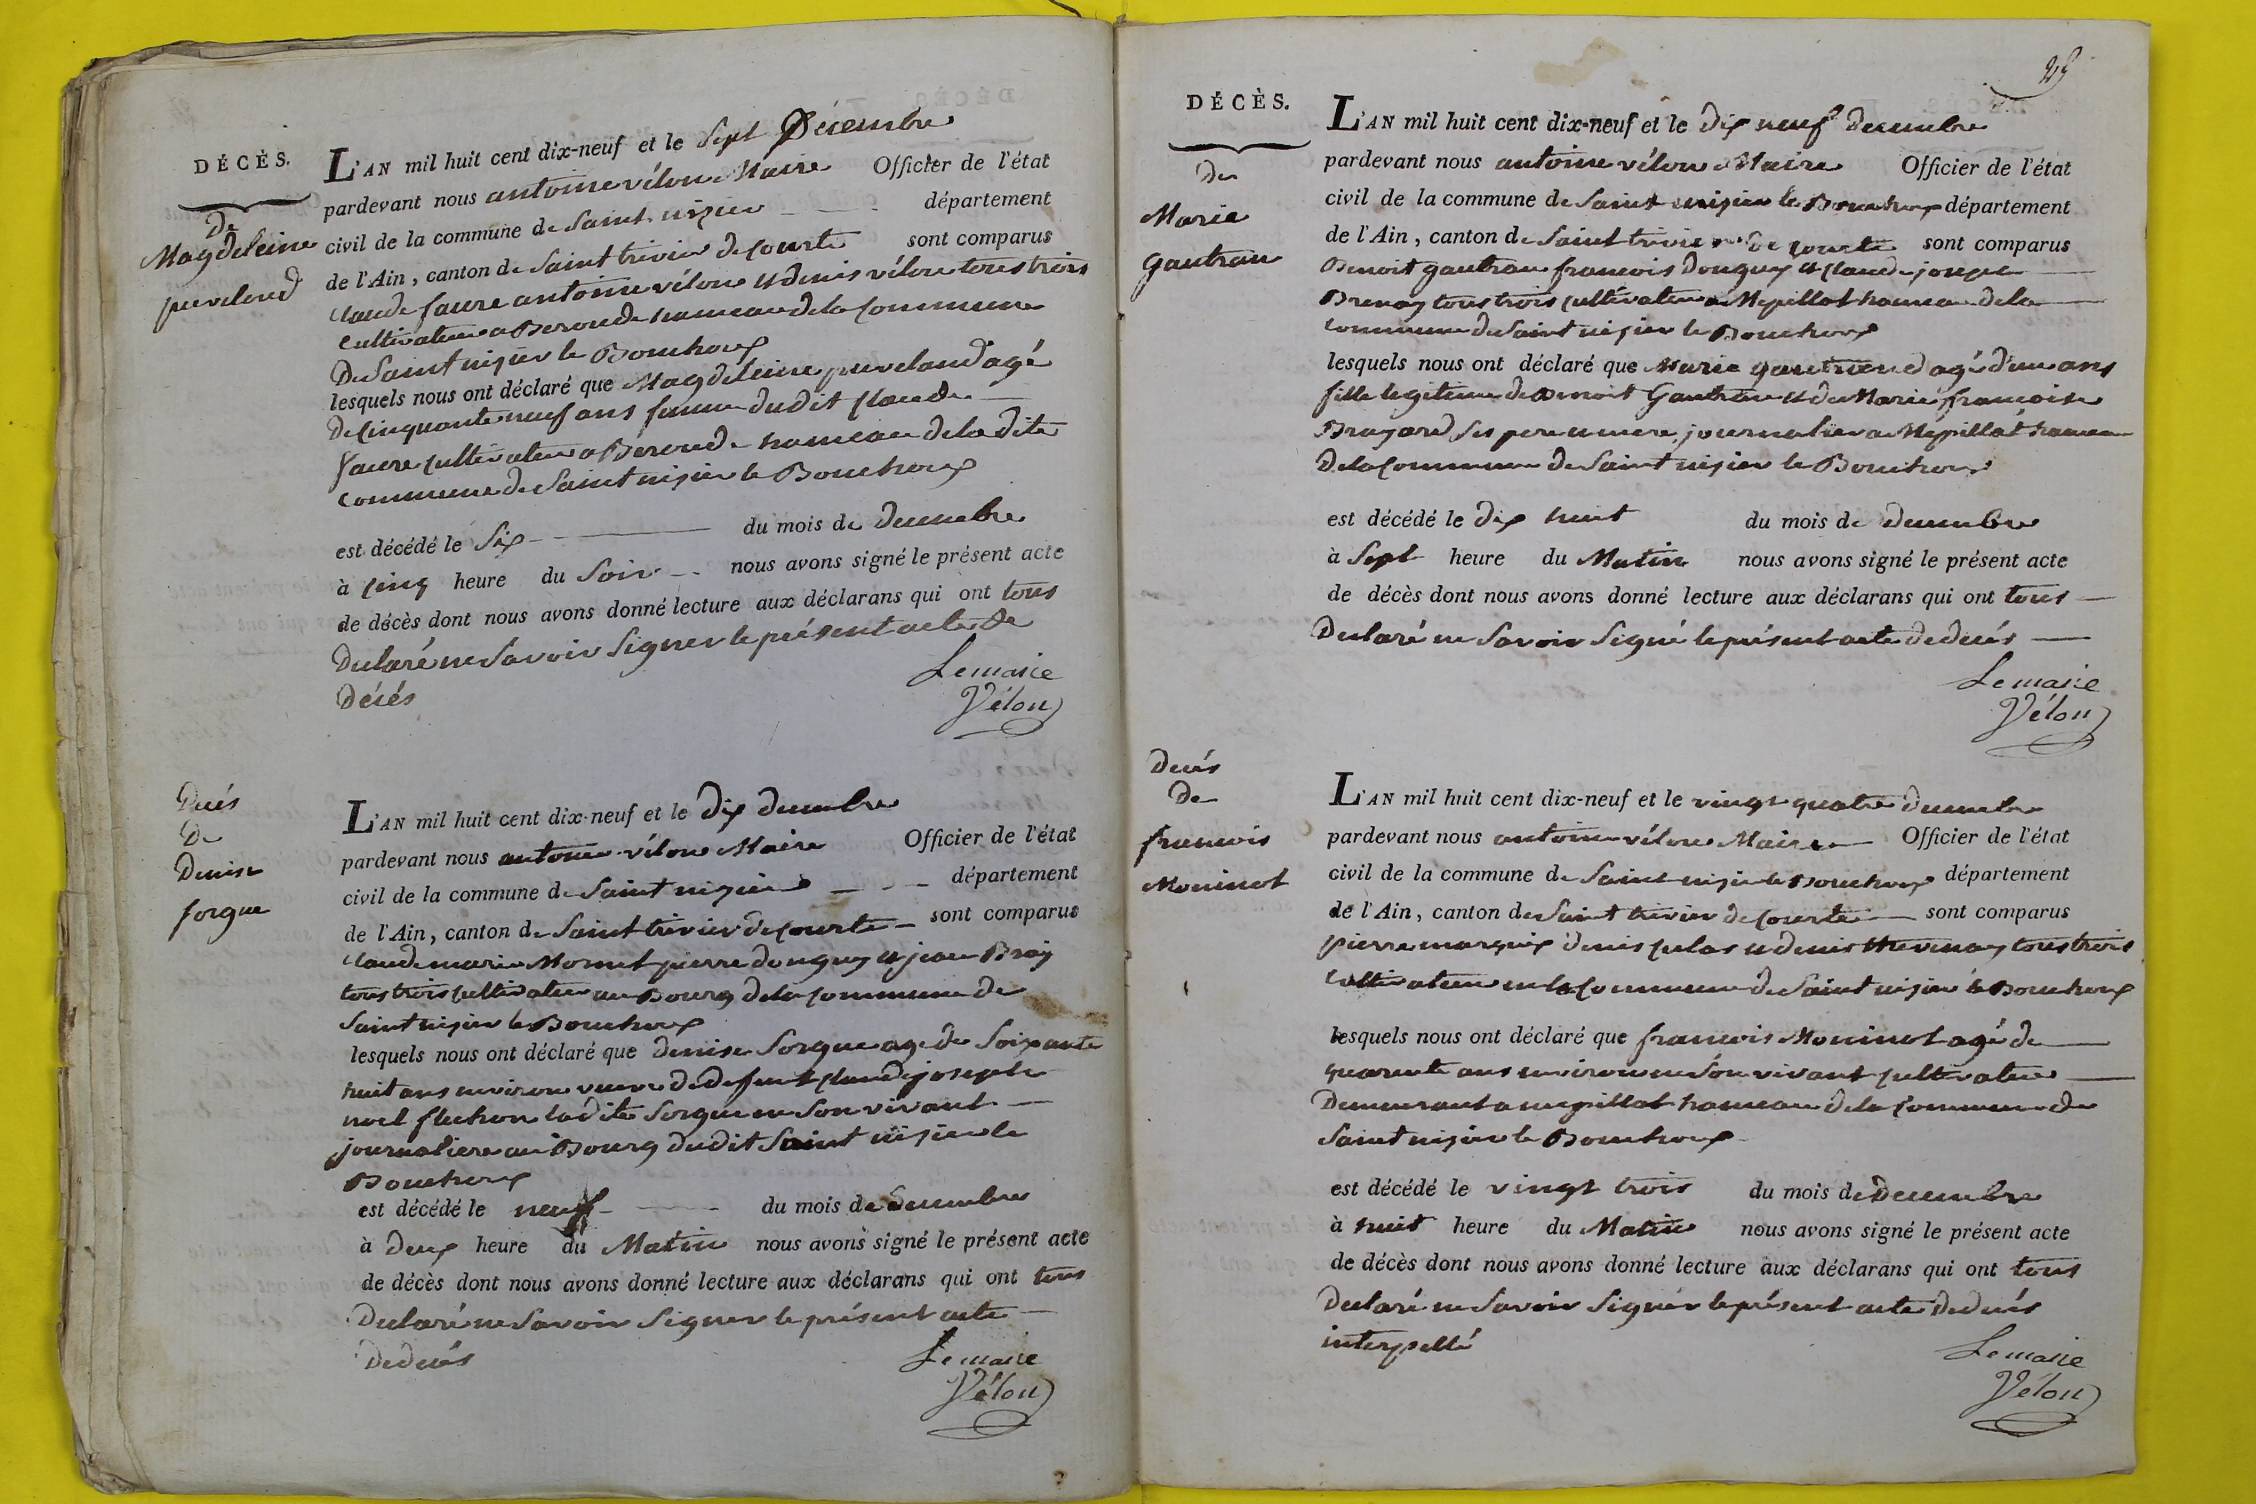 DÉCÈS.
De
Magdeleine
pevelond
L'AN mil huit cent dix-neuf et le Sept Décembre
pardevant nous antoine vélon Maire Officier de l'état
civil de la commune de Saint nizier département
de l'Ain, canton de Saint trivier de Courte sont comparus
Claude faure antoine vélon et denis vélon tous trois
cultivateur a Beroude hameau de la Commune
De Saint nizier le Bouchoux
lesquels nous ont déclaré que Magdeleine peveland agé
De Cinquante neuf ans famme dudit Claude
faure cultivateur a Beroude hameau de la dite
Commune de Saint nizier le Bouchoux
est décédé le Six du mois de decembre
à Cinq heure du Soir nous avons signé le présent acte
de décès dont nous avons donné lecture aux déclarans qui ont tous
Declaré ne Savoir Signer le présent acte De
Décés
Le maire
Vélon
Decés
De
Denise
forgue
L'AN mil huit cent dix-neuf et le dix decembre
pardevant nous antoine vélon Maire Officier de l'état
civil de la commune de Saint nizier département
de l'Ain, canton de Saint trivier de Courte sont comparus
Claude marie Mornet pierre donguy et jean Bray
tous trois cultivateur au Bourg de la Commune de
Saint nizier le Bouchoux
lesquels nous ont déclaré que denise Sorgue age de Soixante
huit ans environ veuve de defunt Claude joseph
noel flechon la dite Sorgue en Son vivant
journaliere au Bourg dudit Saint nizier le
Bouchoux
est décédé le neuf du mois de decembre
à deux heure du Matin nous avons signé le présent acte
de décès dont nous avons donné lecture aux déclarans qui ont tous
Declaré ne Savoir Signer le présent acte
De decés
Le maire
Vélon
DÉCÈS.
De
Maria
Gautran
L'AN mil huit cent dix-neuf et le dix neuf decembre
pardevant nous antoine vélon Maire Officier de l'état
civil de la commune de Saint nizier le Bouchoux département
de l'Ain, canton de Saint trivier de Courte sont comparus
Benoit gautran francois Donguy et Claude joseph
Brenay tous trois cultivateur a Mepillat hameau de la
commune de Saint nizier le Bouchoux
lesquels nous ont déclaré que Marie gautrand agé d'un ans
fille legitime de Benoit Gautran et de Marie francoise
Brayard Ses pere et mere journalier a Mépillat hameau
De la Commune de Saint nizier le Bouchoux
est décédé le dix huit du mois de decembre
à Sept heure du Matin nous avons signé le présent acte
de décès dont nous avons donné lecture aux déclarans qui ont tous
Declaré ne Savoir Signé le présent acte De decés
Le maire
Vélon
Decés
De
francois
Moninot
L'AN mil huit cent dix-neuf et le vingt quatre decembre
pardevant nous antoine vélon Maire Officier de l'état
civil de la commune de Saint nizier le Bouchoux département
de l'Ain, canton de Saint trivier de Courte sont comparus
pierre marquis denis pelas et denis thevenay tous trois
Cultivateur en la Commune de Saint nizier le Bouchoux
lesquels nous ont déclaré que francois Moninot agé de
quarente ans environ en Son vivant cultivateur
Demeurant a mepillat hameau de la Commune de
Saint nizier le Bouchoux
est décédé le vingt trois du mois de Decembre
à huit heure du Matin nous avons signé le présent acte
de décès dont nous avons donné lecture aux déclarans qui ont tous
Declaré ne Savoir Signer le présent acte De decés
interpellé
Le maire
Vélon